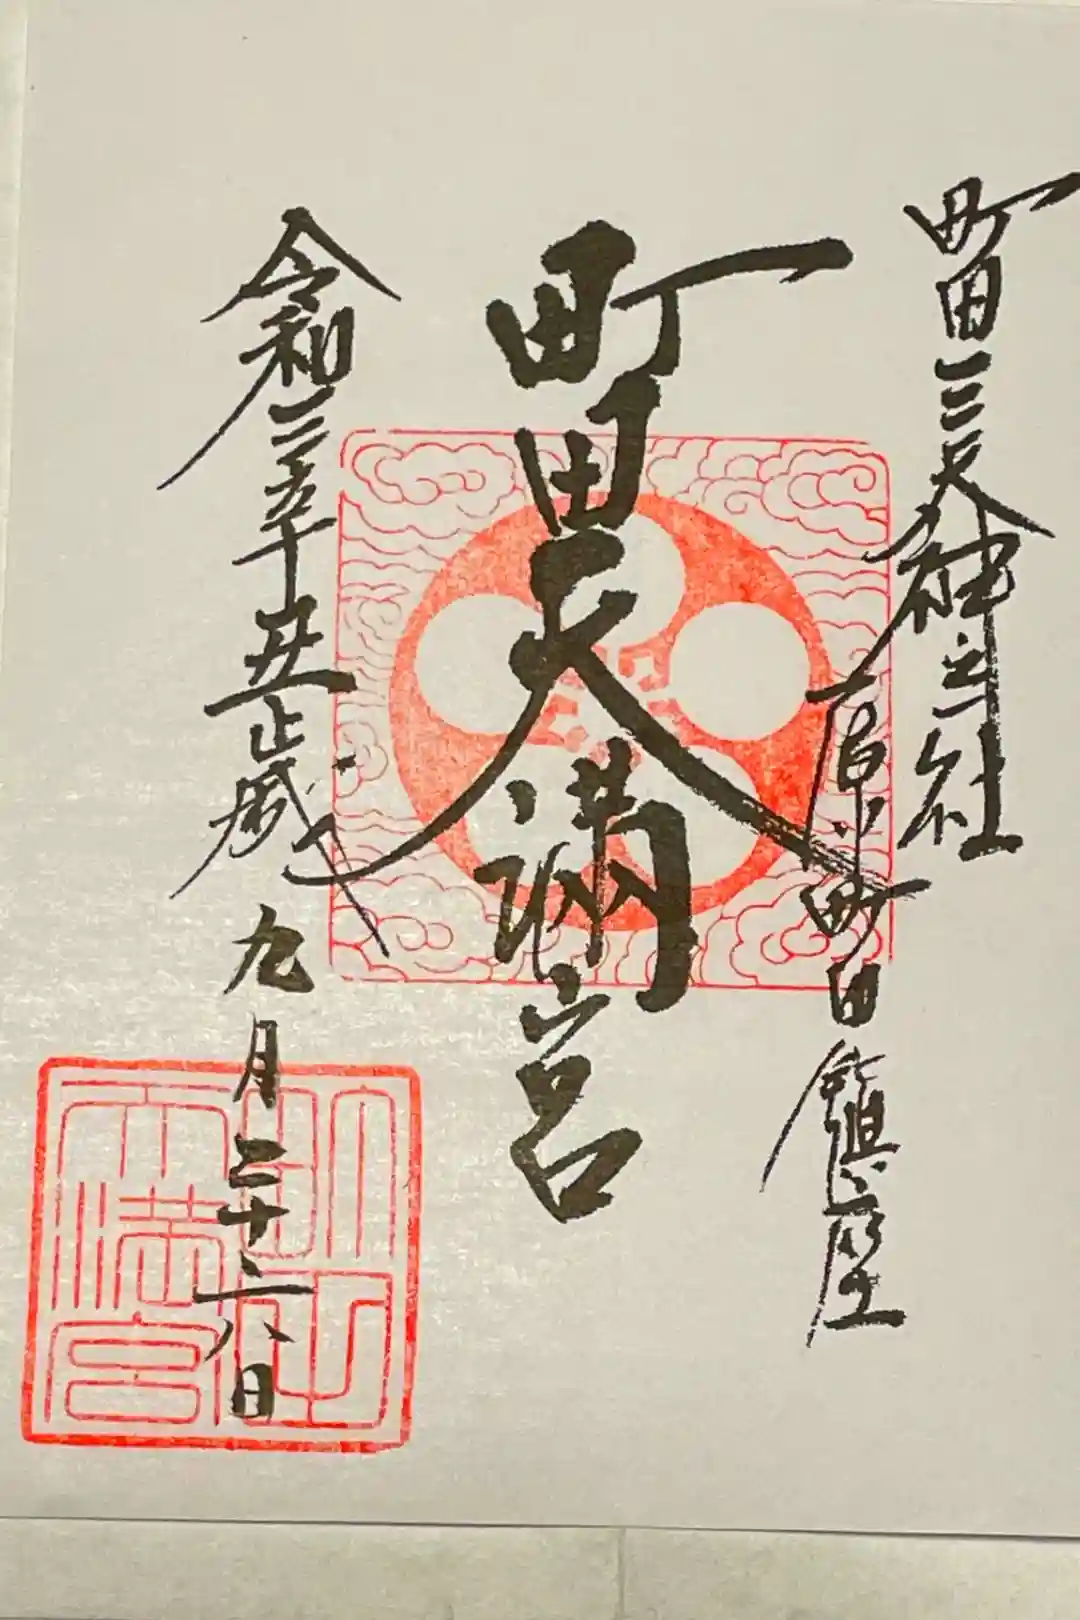 町田三天神之社
原町田鎮座
町田天満宮
令和三年丑歳九月二十六日
町田天満宮